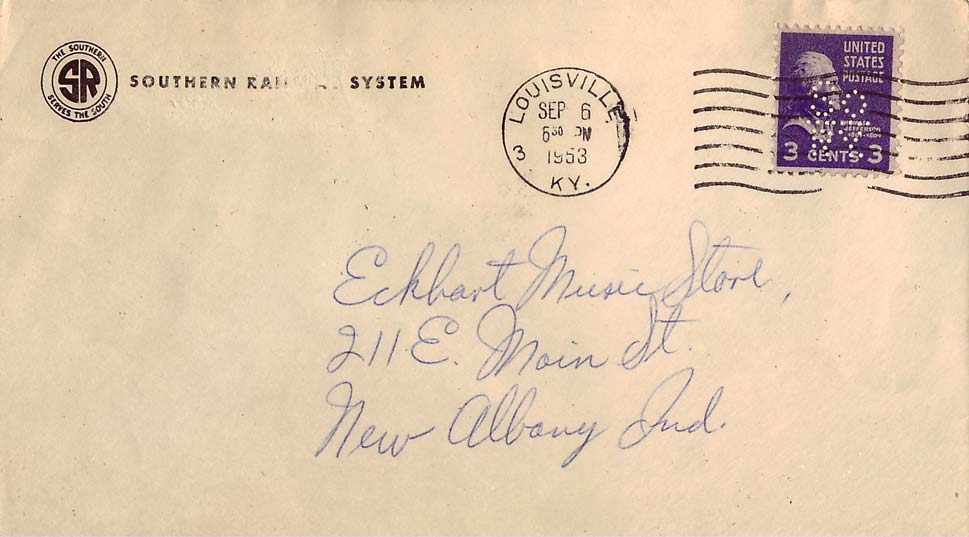 THE SOUTHERN
SR
SERVES THE SOUTH
SOUTHERN RAILWAY SYSTEM
LOUISVILLE
SEP 6
6 30 PM
1953
3
KY.
UNITED
STATES
POSTAGE
JEFFERSON
3 CENTS 3
Eckhart Music Store,
211 E. Main St.
New Albany Ind.